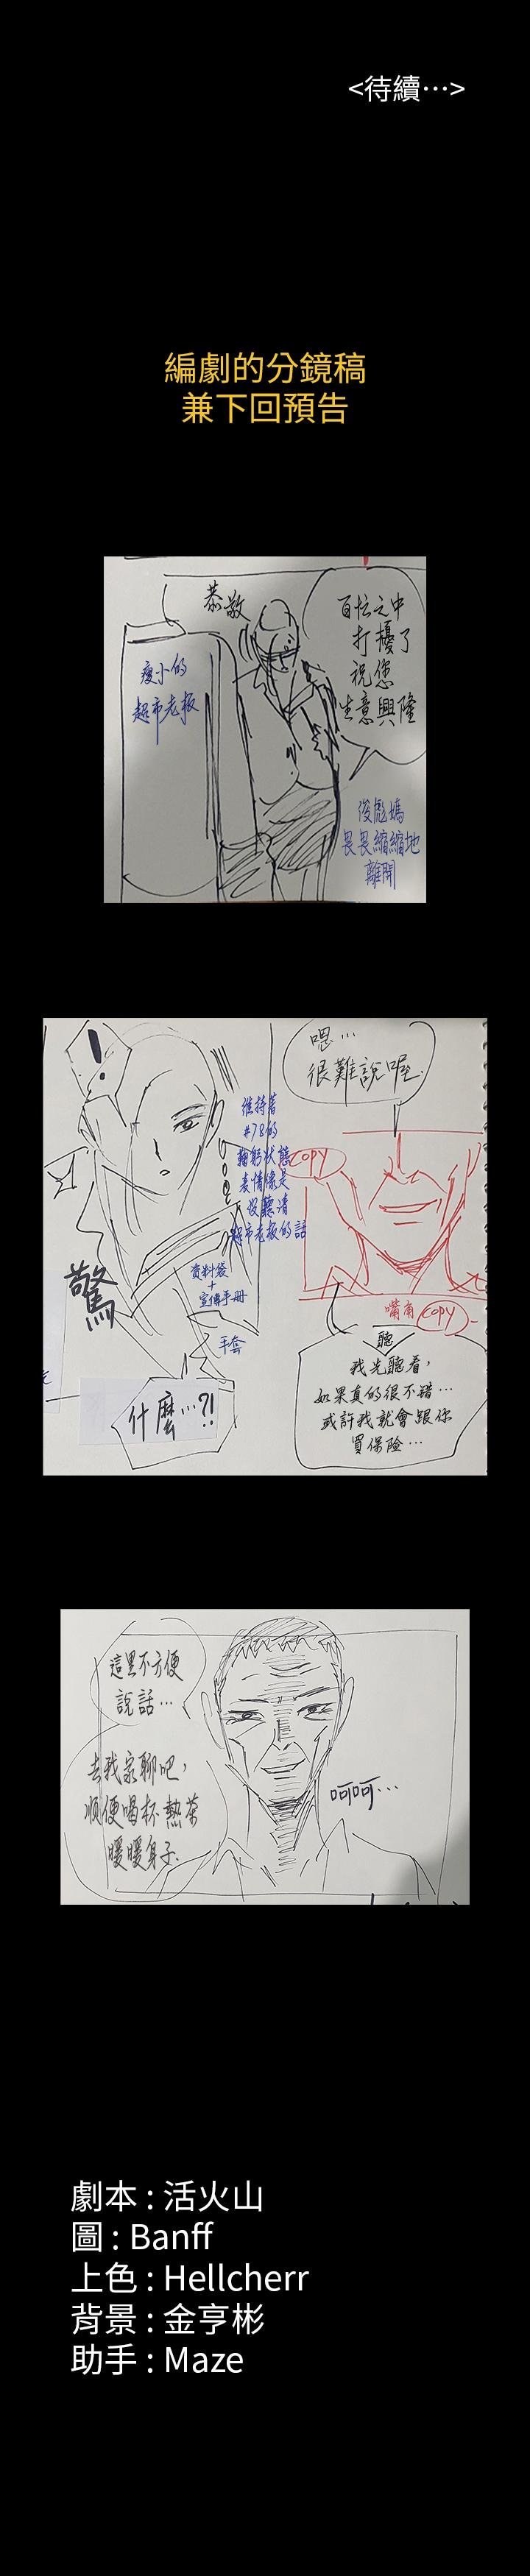 <待續…>
編劇的分鏡稿
兼下回預告
恭敬
百忙之中
打擾了
祝您
生意興隆
瘦小的
超市老板
俊彪媽
畏畏縮縮地
離開
!
嗯…
很難說喔.
維持著
#78的
鞠躬狀態
表情像是
沒聽清
超市老板的話
COPY
资料袋
+
宣傳手冊
手套
驚
什麼…?!
嘴角 COPY
聽
我先聽看,
如果真的很不錯…
或許我就會跟你
買保險…
這里不方便
說話…
去我家聊吧,
順便喝杯熱茶
暖暖身子.
呵呵…
劇本 : 活火山
圖 : Banff
上色 : Hellcherr
背景 : 金亨彬
助手 : Maze